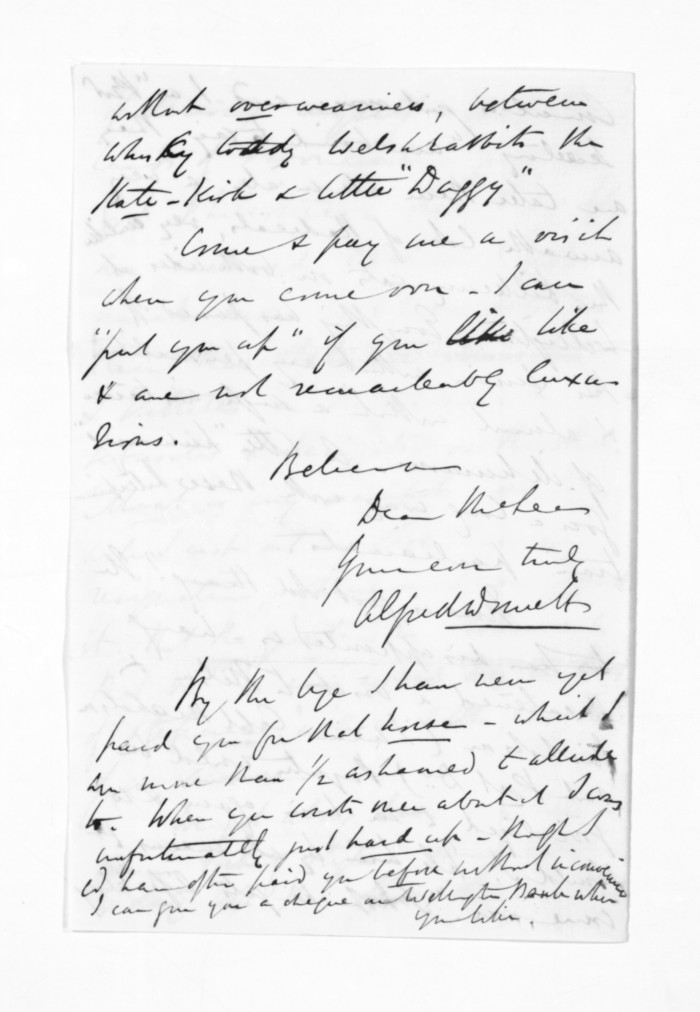 without overweariness, between
whisky toddy Welsh rabbits the
Kate-Kirk & little "Daggy"
Come & pay me a visit
when you come over - I can
"put you up" if you like like
& are not remarkably luxu
rious.
Believe me
Dear McLean
Yours ever truly
Alfred Domett
By the bye I have never yet
paid you for that horse - which I
am more than 1/2 ashamed to allude
to. When you wrote me about it I was
unfortunately just hard up - though I
cd have often paid you before without inconvenience
I can give you a cheque on Wellington Bank when
you like.